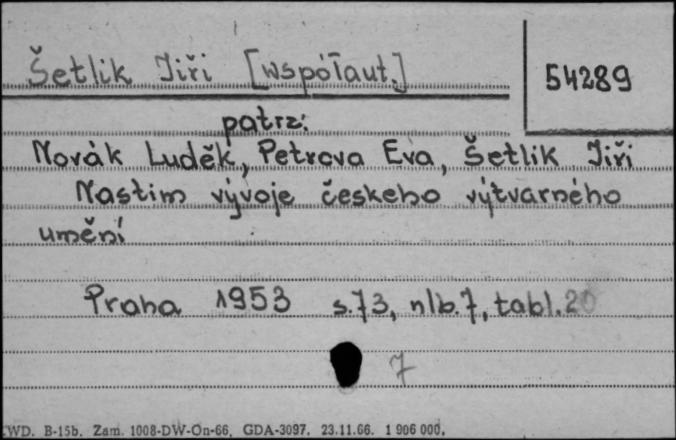 Šetlik Jiři [współaut.]
54289
patrz:
Novák Luděk, Petrova Eva, Šetlik Jiři
Nastim vývoje českeho výtvarného
umění
Praha 1953 s.73, nlb.7, tabl.20
7
WD. B-15b. Zam. 1008-DW-On-66, GDA-3097. 23.11.66. 1 906 000.